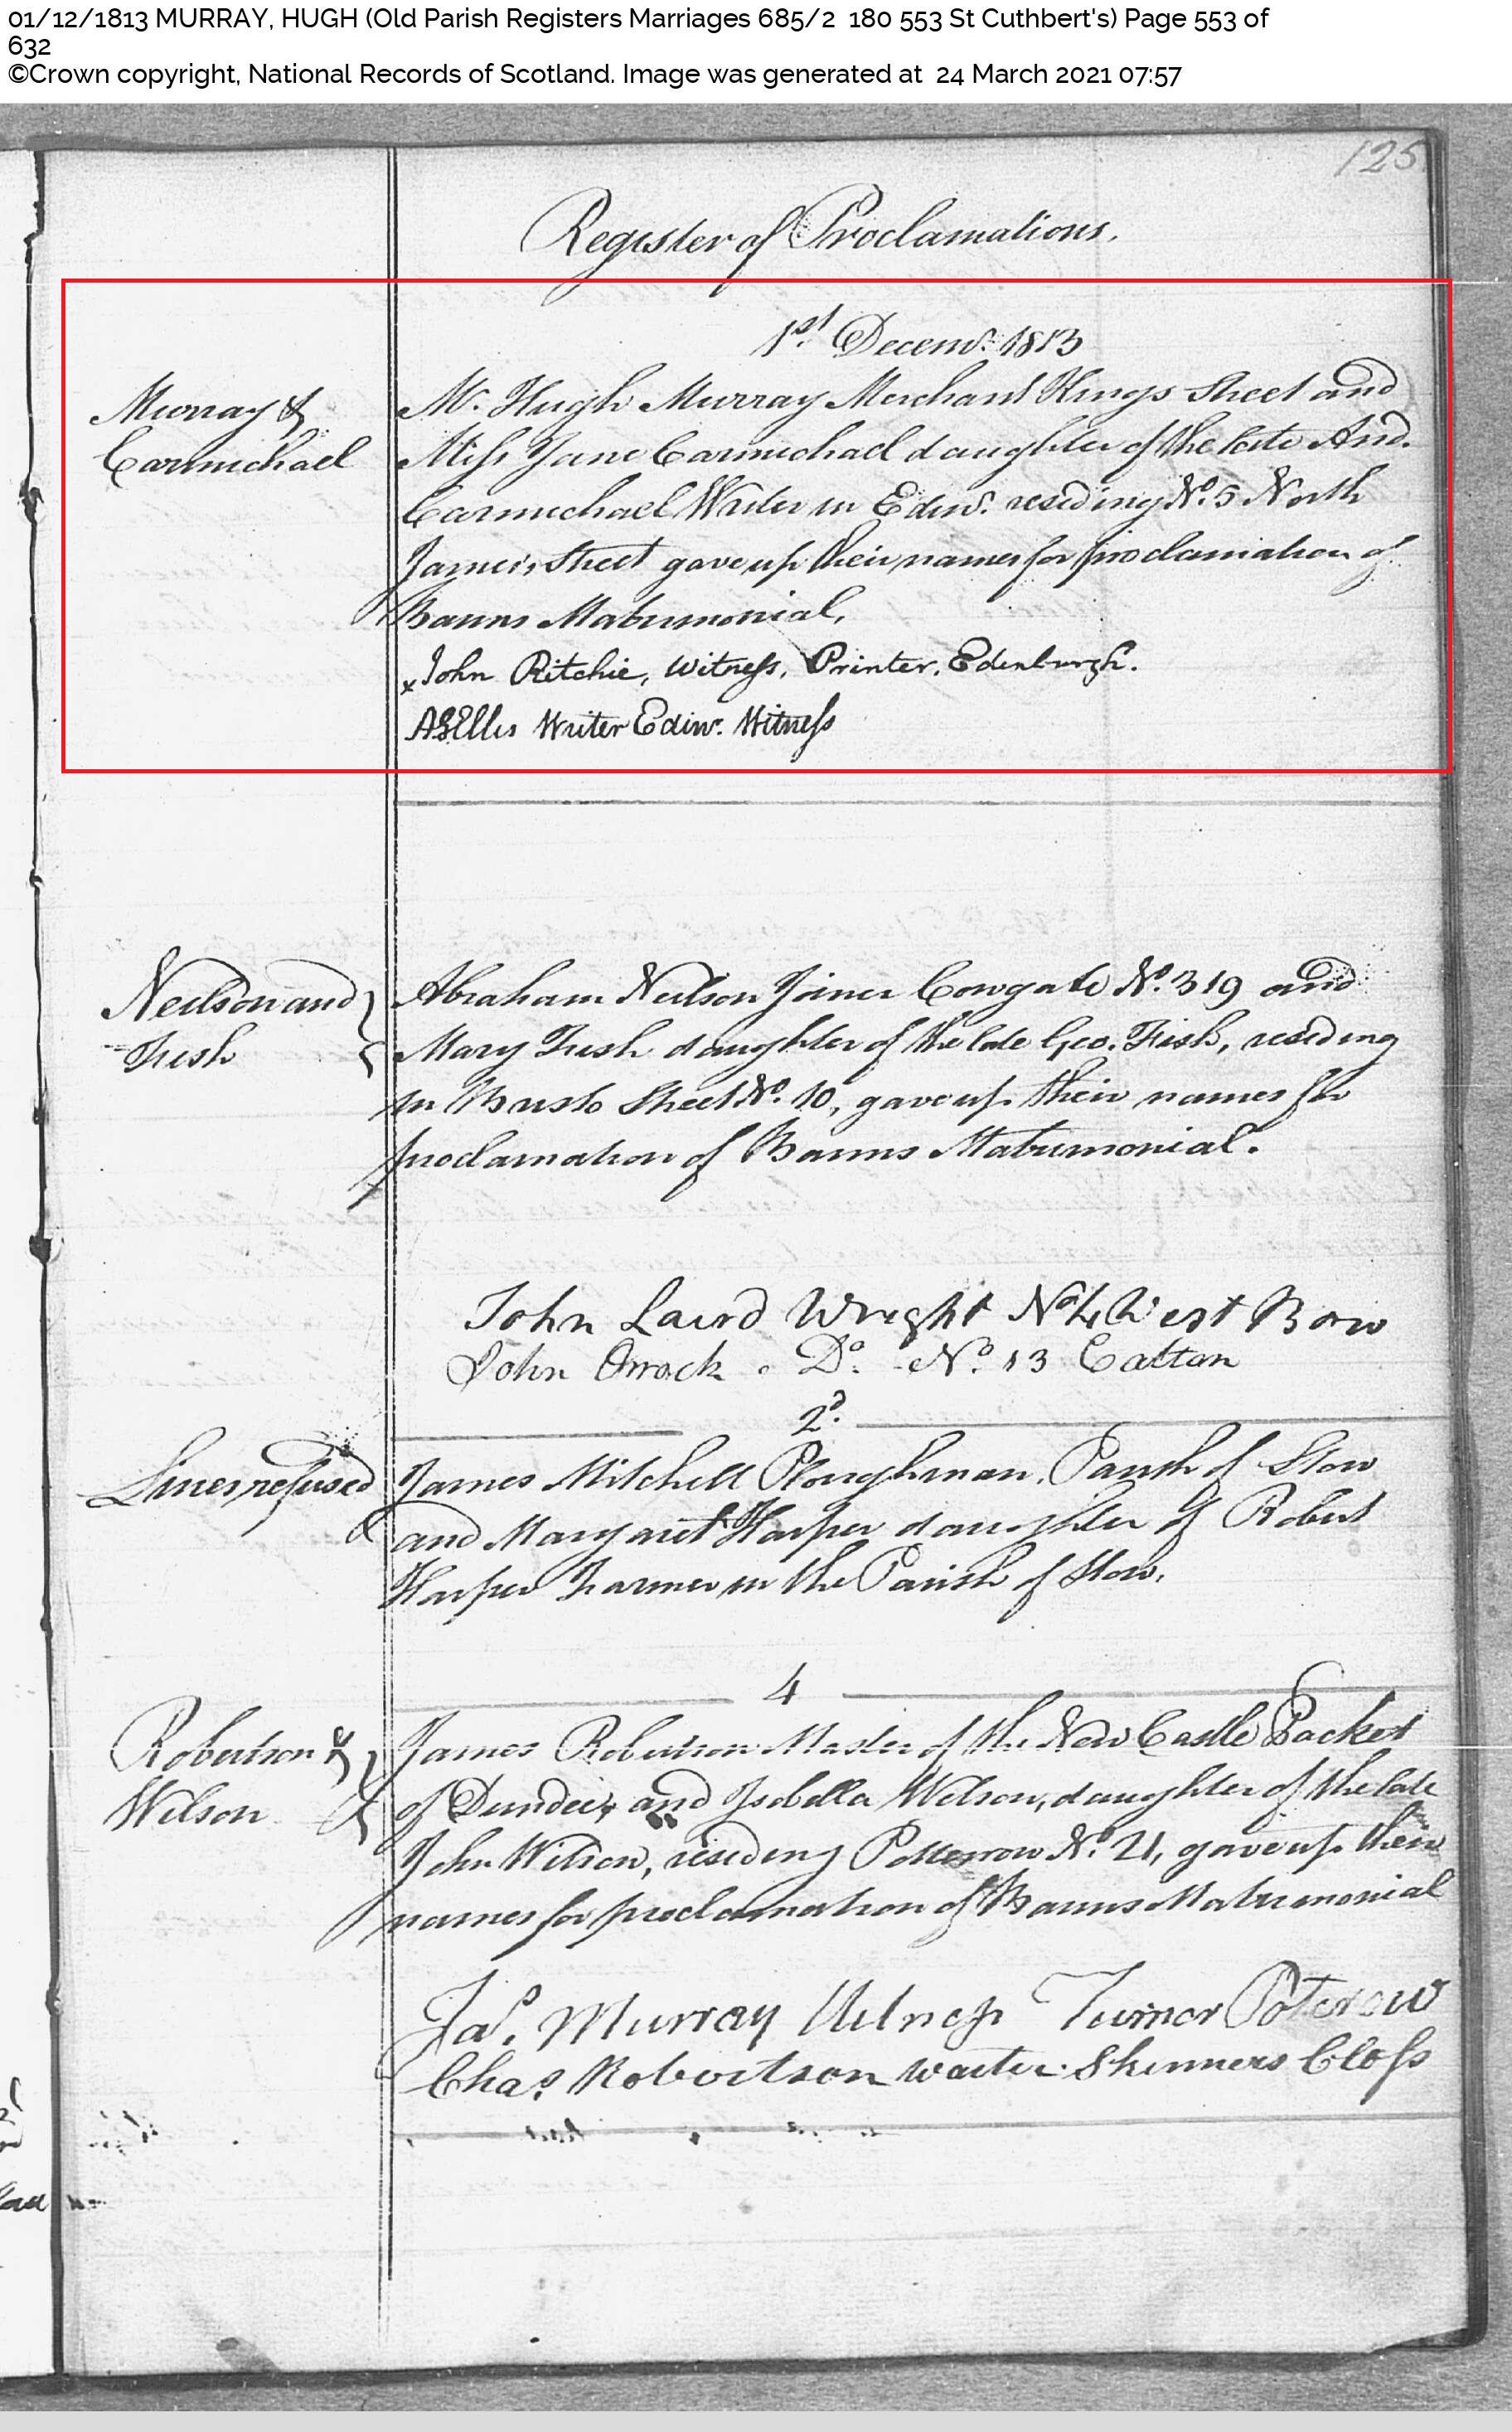 01/12/1813 MURRAY, HUGH (Old Parish Registers Marriages 685/2 180 553 St Cuthbert's) Page 553 of
632
©Crown copyright, National Records of Scotland. Image was generated at 24 March 2021 07:57
125
Register of Proclamations.
1st Decemr. 1813
Murray &
Carmichael
Mr. Hugh Murray Merchant Kings Street and
Miss Jane Carmichael daughter of the late And.
Carmichael Writer in Edinr. residing No. 5 North
James's Street gave up their names for proclamation of
Banns Matrimonial.
John Ritchie, Witness, Printer, Edinburgh.
AGEllis Writer Edinr. Witness
Neilson and
Fish
Abraham Neilson Joiner Cowgate No. 319 and
Mary Fish daughter of the late Geo. Fish, residing
in Street No. 10, gave up their names for
proclamation of Banns Matrimonial.
John Laird Wright No 4 West Bow
John Orrock Do. No. 13 Calton
2d.
Lines refused
James Mitchell Ploughman, Parish of Stow
and Margaret Harper daughter of Robert
Harper Farmer in the Parish of Stow.
4
Robertson &
Wilson
James Robertson Master of the New Castle Packet
of Dundee, and Isobella Wilson, daughter of the late
John Wilson, residing Potterrow No. 21, gave up their
names for proclamation of Banns Matrimonial
Jas. Murray Witness Turner Poterow
Chas. Robertson Waiter Skinners Closs